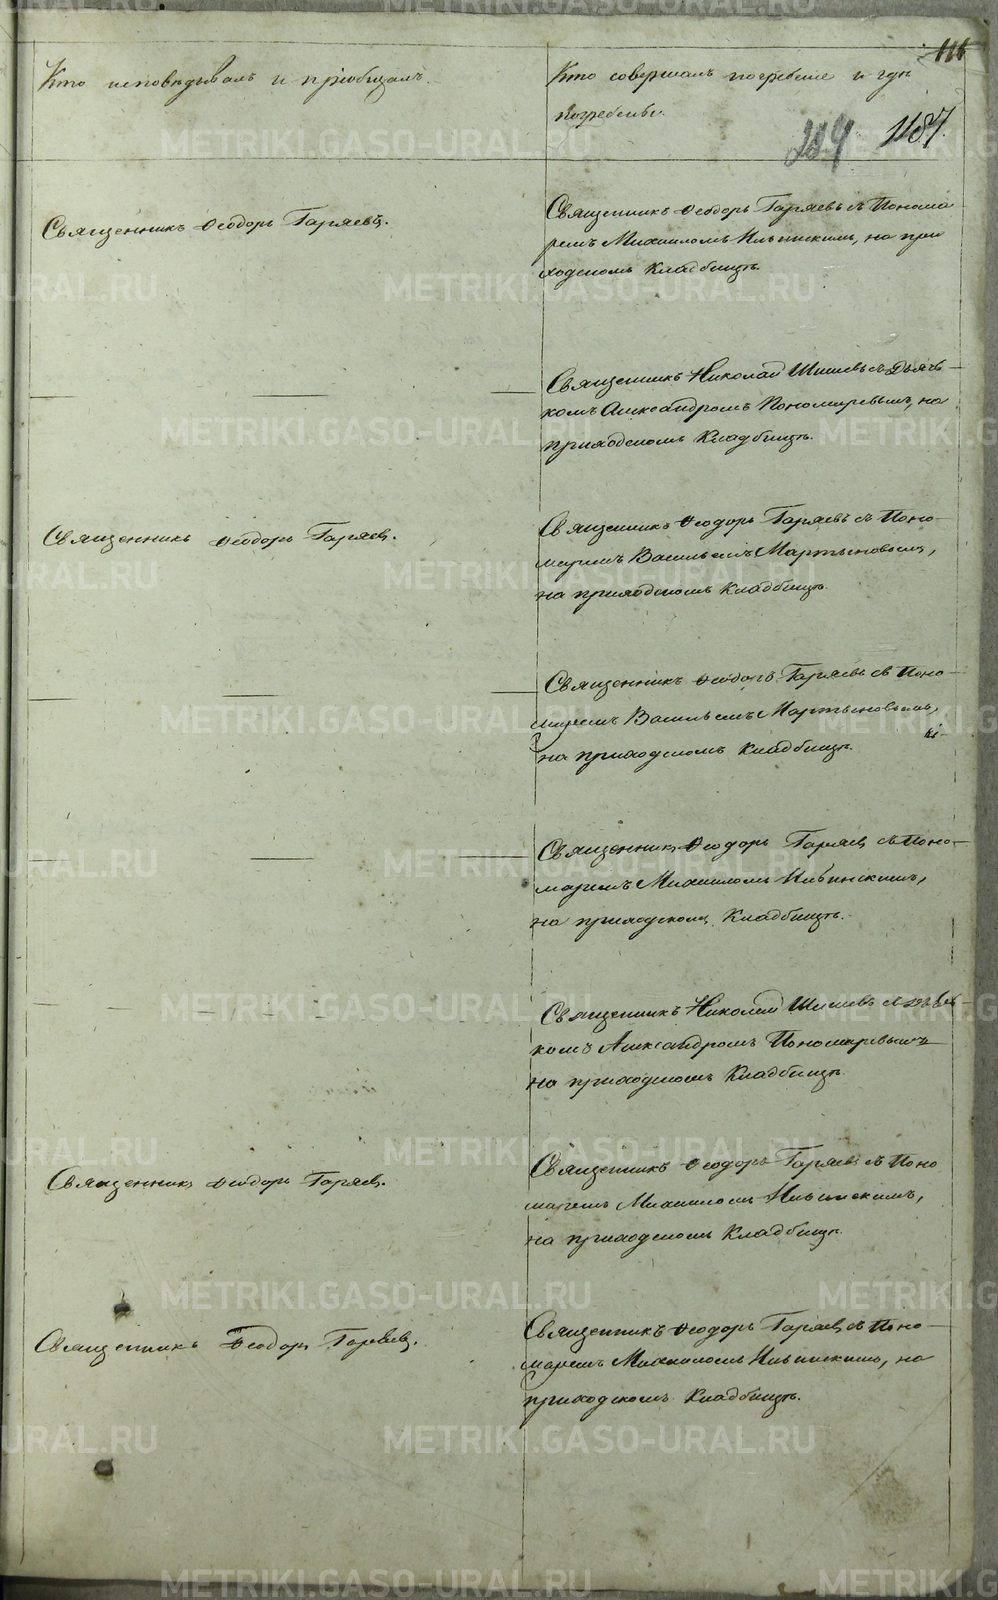 116
Кто исповѣдывалъ и пріобщалъ.
Кто совершалъ погребеніе и гдѣ
погребены.
1187.
Священникъ Ѳеодоръ Гаряевъ.
Священникъ Ѳеодоръ Гаряевъ съ Понома
ремъ Михаиломъ Ильинскимъ, на при
ходскомъ Кладбищѣ.
Священникъ Николай Шишевъ съ Дьяч
комъ Александромъ Пономаревымъ, на
приходскомъ Кладбищѣ.
Священникъ Ѳеодоръ Гаряевъ.
Священникъ Ѳеодоръ Гаряевъ съ Поно-
маремъ Васильемъ Мартыновымъ,
на приходскомъ Кладбищѣ.
Священникъ Ѳеодоръ Гаряевъ съ Поно-
маремъ Васильемъ Мартыновымъ,
на приходскомъ Кладбищѣ.
Священникъ Ѳеодоръ Гаряевъ съ Поно-
маремъ Михаиломъ Ильинскимъ,
на приходскомъ Кладбищѣ.
Священникъ Николай Шишевъ съ Дьяч-
комъ Александромъ Пономаревымъ
на приходскомъ Кладбищѣ.
Священникъ Ѳеодоръ Гаряевъ.
Священникъ Ѳеодоръ Гаряевъ съ Поно
маремъ Михаиломъ Ильинскимъ,
на приходскомъ Кладбищѣ.
Священникъ Ѳеодоръ Гаряевъ.
Священникъ Ѳеодоръ Гаряевъ съ Поно-
маремъ Михаиломъ Ильинскимъ, на
приходскомъ Кладбищѣ.
METRIKI.GASO-URAL.RU